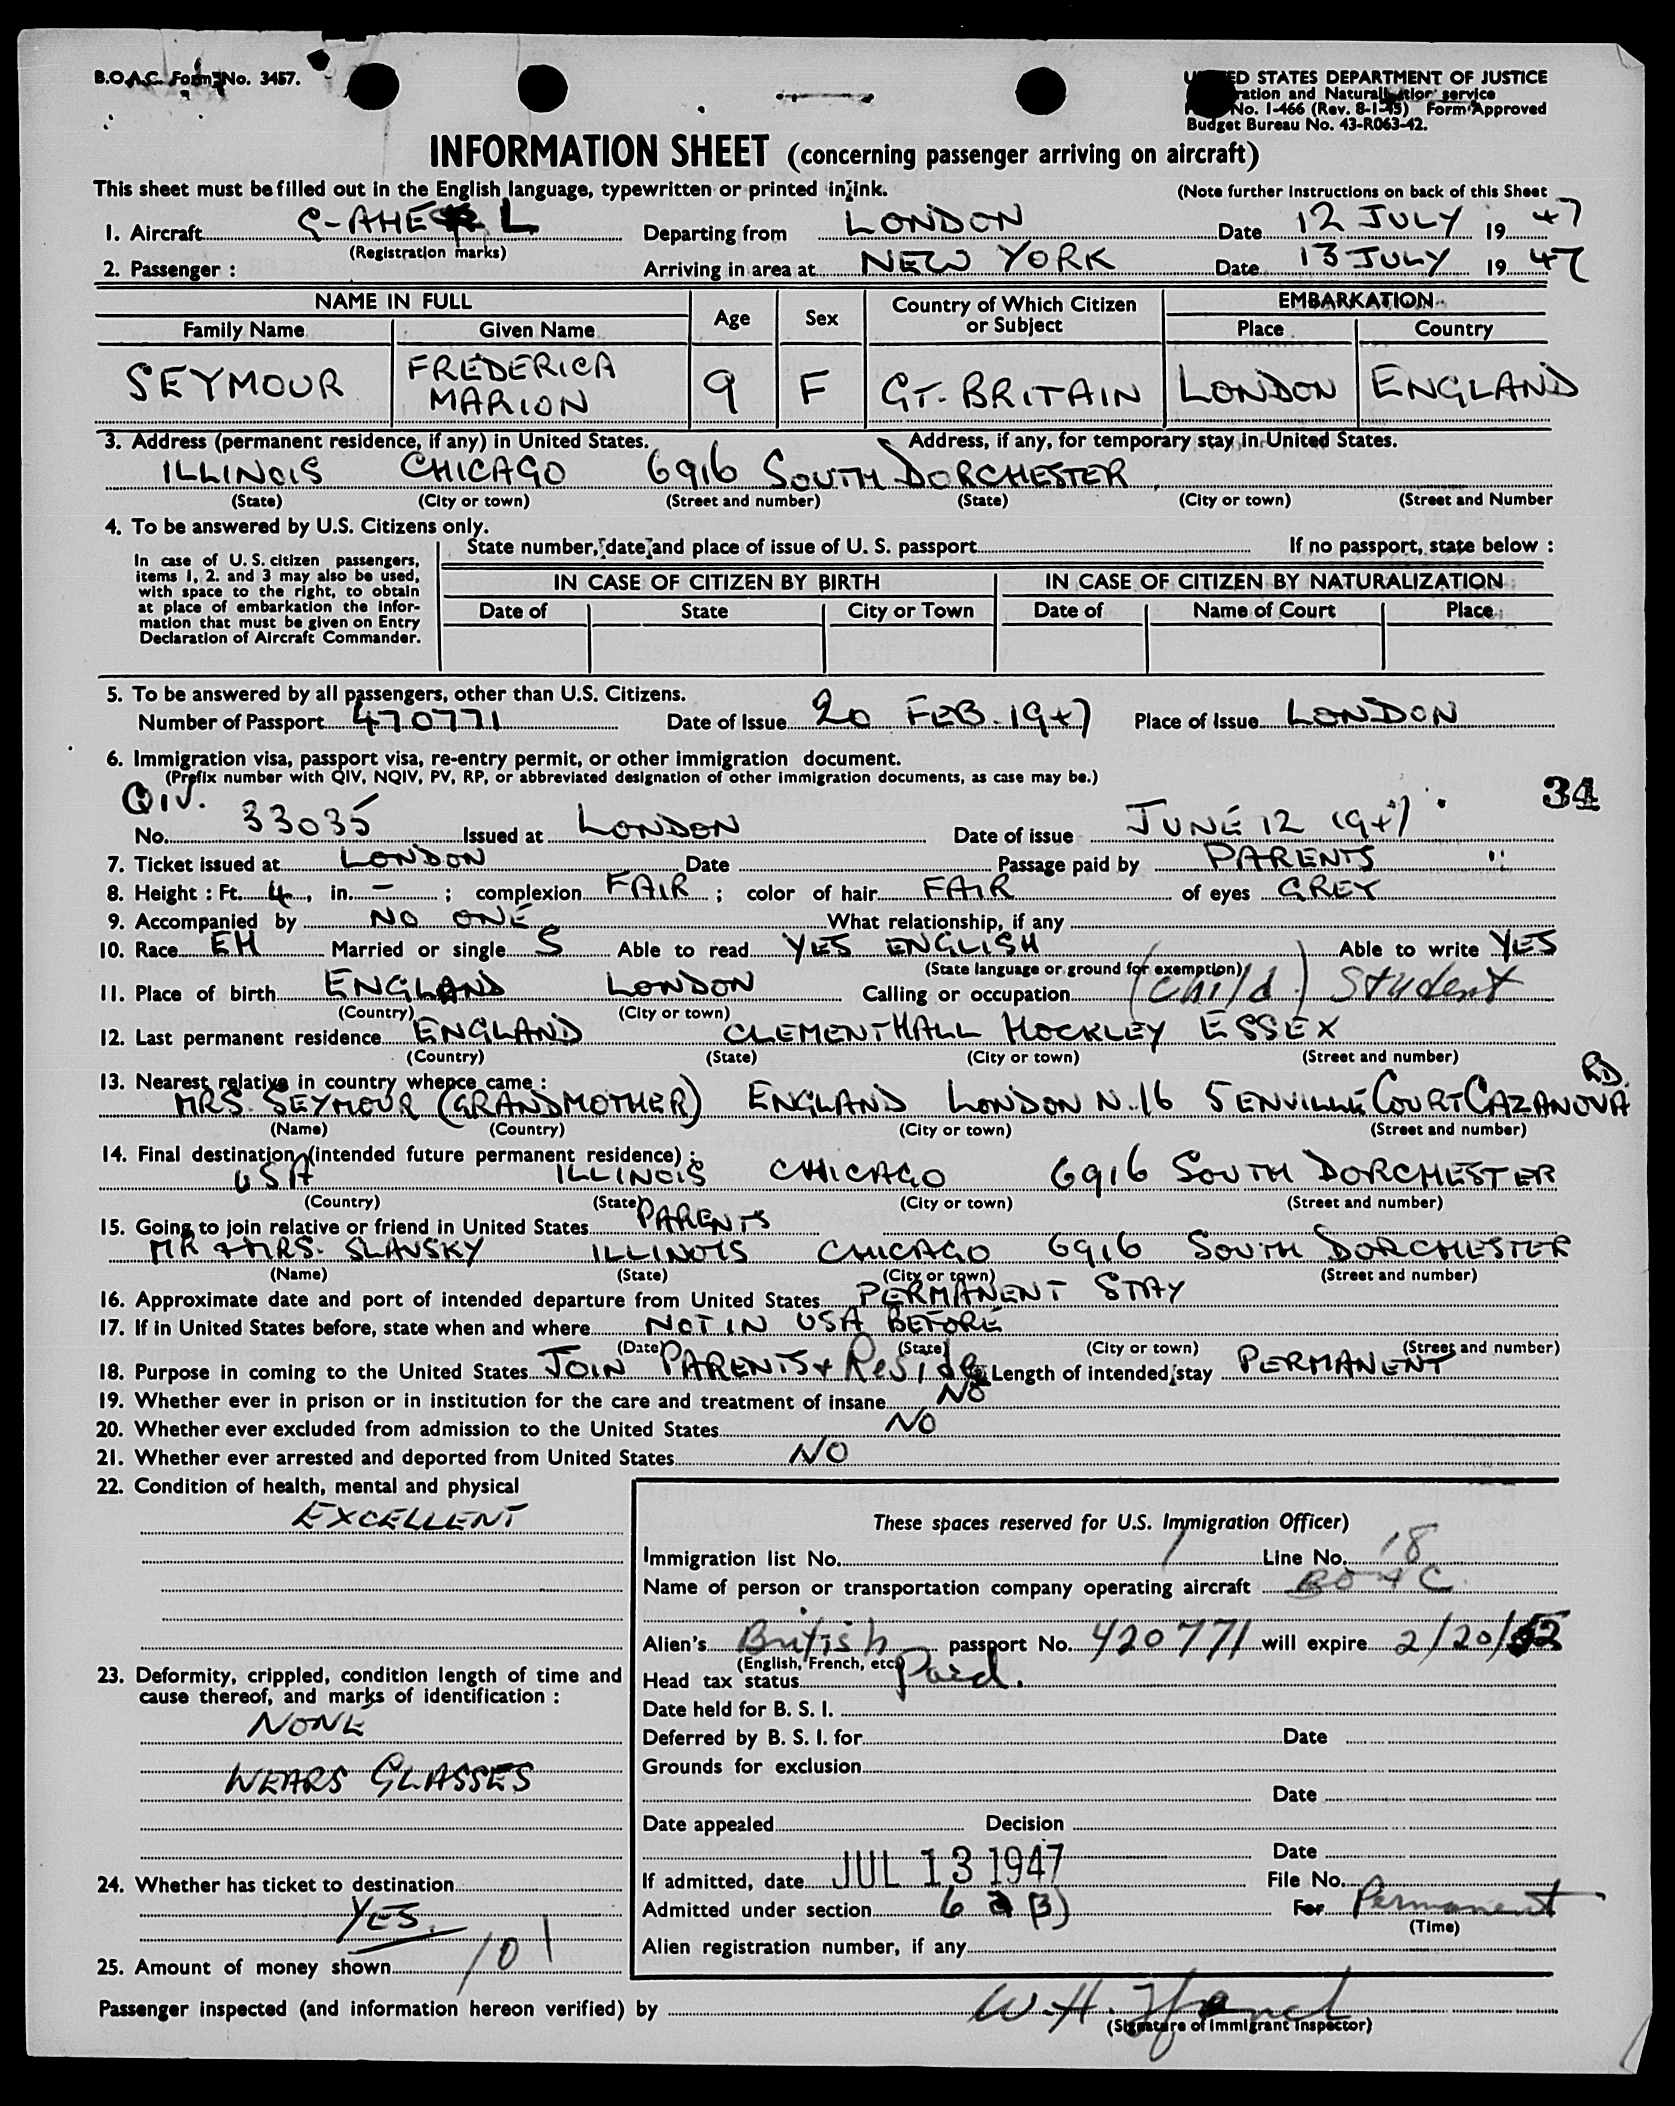 B.O.A.C. Form No. 3457.
UNITED STATES DEPARTMENT OF JUSTICE
Naturalization service
No. I-466 (Rev. 8-1-45) Form Approved
Budget Bureau No. 43-R063-42.
INFORMATION SHEET (concerning passenger arriving on aircraft)
This sheet must be filled out in the English language, typewritten or printed in ink. (Note further Instructions on back of this Sheet
1. Aircraft G-AHE L Departing from LONDON Date 12 JULY 19 47
(Registration marks)
2. Passenger : Arriving in area at NEW YORK Date 13 JULY 19 47
NAME IN FULL Age Sex Country of Which Citizen or Subject EMBARKATION
Family Name Given Name Place Country
SEYMOUR FREDERICA MARION 9 F GT. BRITAIN LONDON ENGLAND
3. Address (permanent residence, if any) in United States. Address, if any, for temporary stay in United States.
ILLINOIS CHICAGO 6916 SOUTH DORCHESTER
(State) (City or town) (Street and number) (State) (City or town) (Street and Number
4. To be answered by U.S. Citizens only.
In case of U. S. citizen passengers, items 1, 2. and 3 may also be used, with space to the right, to obtain at place of embarkation the information that must be given on Entry Declaration of Aircraft Commander.
State number, date and place of issue of U. S. passport If no passport, state below :
IN CASE OF CITIZEN BY BIRTH IN CASE OF CITIZEN BY NATURALIZATION
Date of State City or Town Date of Name of Court Place
5. To be answered by all passengers, other than U.S. Citizens.
Number of Passport 470771 Date of Issue 20 FEB. 1947 Place of Issue LONDON
6. Immigration visa, passport visa, re-entry permit, or other immigration document.
(Prefix number with QIV, NQIV, PV, RP, or abbreviated designation of other immigration documents, as case may be.)
34
QIV.
No. 33035 Issued at LONDON Date of issue JUNE 12 1947
7. Ticket issued at LONDON Date Passage paid by PARENTS
8. Height : Ft. 4, in. - ; complexion FAIR ; color of hair FAIR of eyes GREY
9. Accompanied by NO ONE What relationship, if any
10. Race EH Married or single S Able to read YES ENGLISH Able to write YES
(State language or ground for exemption)
11. Place of birth ENGLAND LONDON Calling or occupation (Child) Student
(Country) (City or town)
12. Last permanent residence ENGLAND CLEMENTHALL HOCKLEY ESSEX
(Country) (State) (City or town) (Street and number)
13. Nearest relative in country whence came :
MRS. SEYMOUR (GRANDMOTHER) ENGLAND LONDON N.16 5 ENVILLE COURT CAZANOVA RD.
(Name) (Country) (City or town) (Street and number)
14. Final destination (intended future permanent residence) :
USA ILLINOIS CHICAGO 6916 SOUTH DORCHESTER
(Country) (State) (City or town) (Street and number)
15. Going to join relative or friend in United States PARENTS
MR & MRS. SLAVSKY ILLINOIS CHICAGO 6916 SOUTH DORCHESTER
(Name) (State) (City or town) (Street and number)
16. Approximate date and port of intended departure from United States PERMANENT STAY
17. If in United States before, state when and where NOT IN USA BEFORE
(Date) (State) (City or town) (Street and number)
18. Purpose in coming to the United States JOIN PARENTS & Reside Length of intended stay PERMANENT
19. Whether ever in prison or in institution for the care and treatment of insane NO
20. Whether ever excluded from admission to the United States NO
21. Whether ever arrested and deported from United States NO
22. Condition of health, mental and physical
EXCELLENT
23. Deformity, crippled, condition length of time and cause thereof, and marks of identification :
NONE
WEARS GLASSES
24. Whether has ticket to destination
YES.
25. Amount of money shown 101
These spaces reserved for U.S. Immigration Officer)
Immigration list No. 1 Line No. 18
Name of person or transportation company operating aircraft BOAC
Alien's British passport No. 420771 will expire 2/20/52
(English, French, etc.)
Head tax status Paid.
Date held for B. S. I.
Deferred by B. S. I. for Date
Grounds for exclusion
Date
Date appealed Decision
Date
If admitted, date JUL 13 1947 File No.
Admitted under section 6 a (3) For Permanent
(Time)
Alien registration number, if any
Passenger inspected (and information hereon verified) by W.H.
(Signature of Immigrant Inspector)